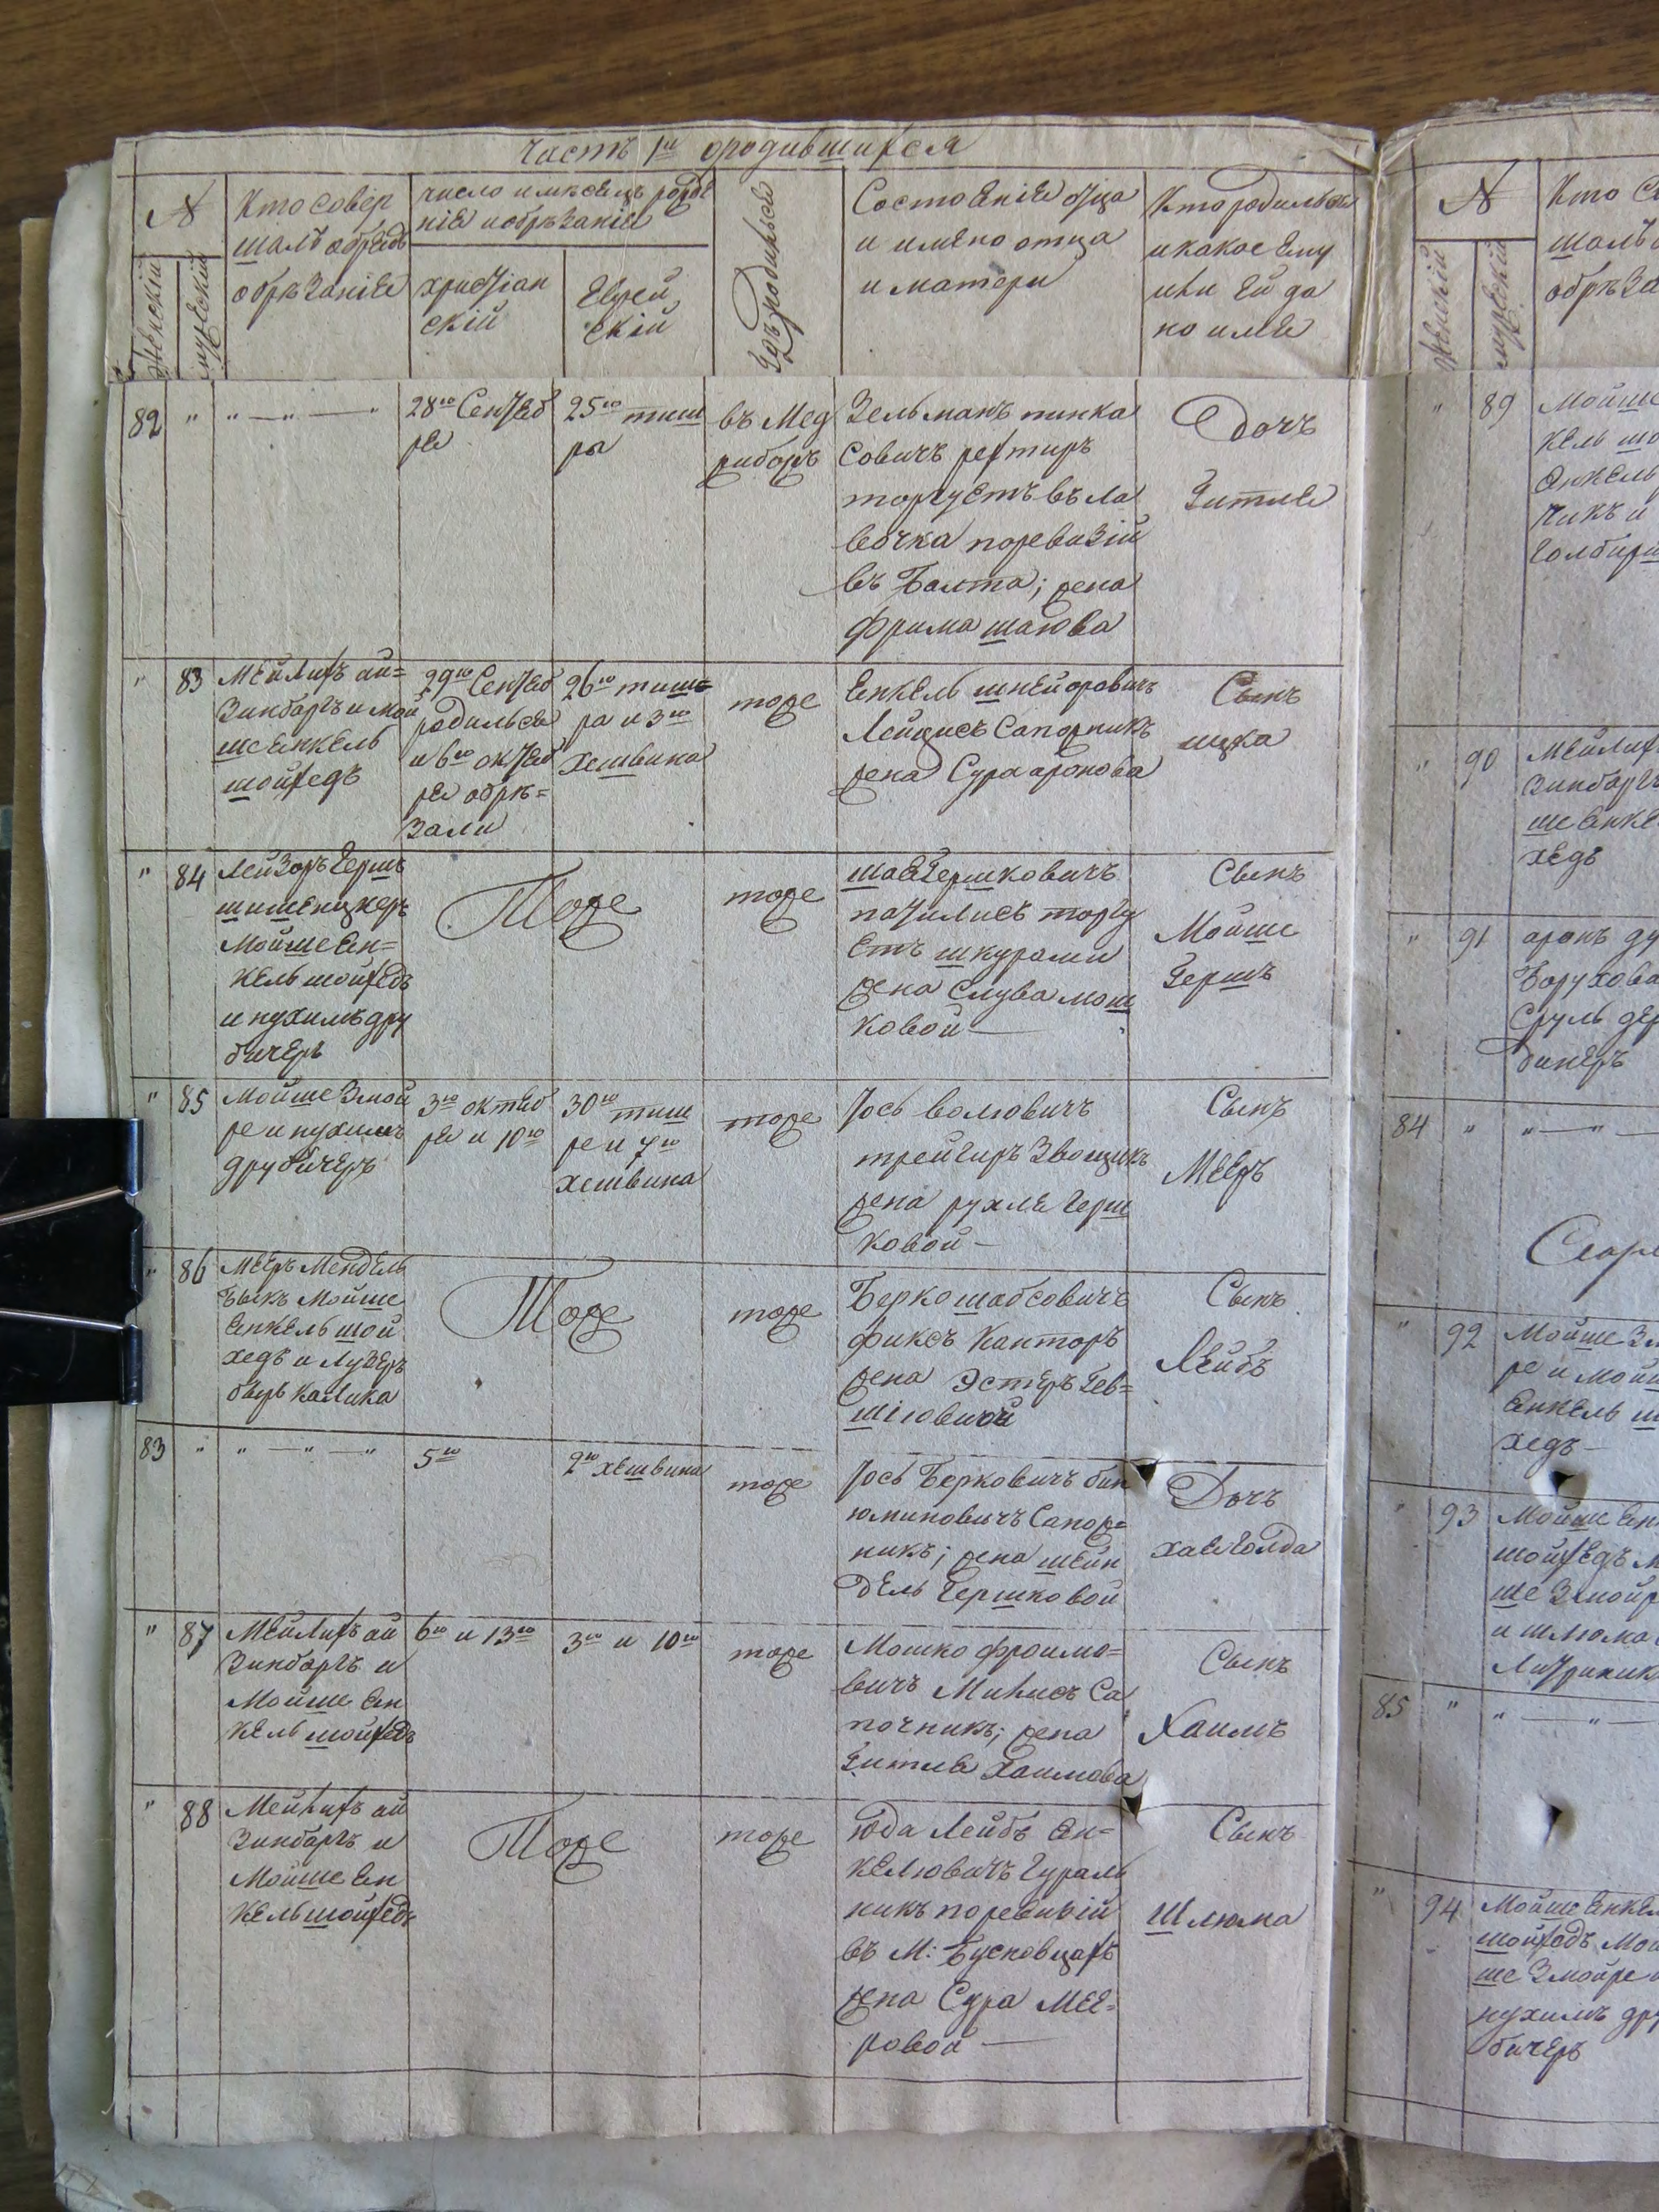 Часть 1я ородившихся
N
Женскій
мужескій
Кто совер
шалъ обредъ
обрѣзаніе
число и мѣсецъ рожде
ніе и обрѣзаніе
христіан
скій
Еврей
скій
Гдѣ родился
Состоеніе отца
и имено отца
и матери
Кто родилься
и какое ему
или ей да
но име
82 " " — " — "
28го Сентеб
ре
25го тиш
ры
въ Мед
жиборѣ
Зельманъ пинка
совичъ
торгуетъ въ ла
вочка поревизій
въ Балта; жена
фрима шаюва
Дочъ
Гитле
" 83
Мейлихъ ай=
зинбаргъ и мой
ше енкель
шойхедъ
29го Сентеб
родилься
и 6го октеб
ре обрѣ=
зали
26го тиш=
ра и 3го
хешвина
тоже
Енкель шнейоровичъ
Лейцисъ Сапожникъ
жена Сура аронова
Сынъ
ицка
" 84
Лейзоръ Гершъ
Мойше Ен=
кель шойхедъ
и нухимъ дру
бичеръ
Тоже
тоже
шаегершковичъ
торгу
етъ шкурами
жена слува мош
ковой —
Сынъ
Мойше
Гершъ
" 85
Мойше Змой
ре и нухимъ
друбичеръ
3го октеб
ре и 10го
30го тиш
ре и 7го
хешвина
тоже
Іось волювичъ
трейгиръ Звощикъ
жена рухле Герш
ковой —
Сынъ
Мееръ
" 86
Мееръ Мендель
Быкъ Мойше
Енкель шой
хедъ и Лузеръ
беръ калика
Тоже
тоже
Берко шабсовичъ
фиксъ Канторъ
жена Эстеръ Гев=
шіговичой
Сынъ
Лейбъ
83 " " — " — "
5го
2го хешвина
тоже
Іось Берковичъ бин
юминовичъ Сапож=
никъ; жена шейн
дель Гершковой
Дочъ
хае голда
" 87
Мейлихъ ай
Зинбаргъ и
Мойше Ен
кель шойхедъ
6го и 13го
3го и 10го
тоже
Мошко фроимо=
вичъ Милисъ Са
почникъ; жена
Гитле Хаимова
Сынъ
Хаимъ
" 88
Мейлихъ ай
Зинбаргъ и
Мойше Ен
кель шойхедъ
Тоже
тоже
юда Лейбъ Ен=
келювичъ Гураль
никъ поревизій
въ М: Бусновцахъ
жена Сура Мее=
ровой —
Сынъ
Шлюма
N
Женскій
мужескій
Кто со
шалъ о
обрѣза
" 89
Мойше
кель шо
Енкель
чикъ и
" 90
Мейлих
Зинбаргъ
ше Енке
хедъ
" 91
аронъ ду
Борухова
Сруль дер
84 " " — " —
" 92
Мойше Зм
ре и мойш
Енкель ш
хедъ —
" 93
Мойше Ен
шойхедъ м
ше Змойр
и шлюма
85 " " — " —
" 94
Мойше Енкел
шойхедъ Мой
ше Змойре и
нухимъ дру
бичеръ